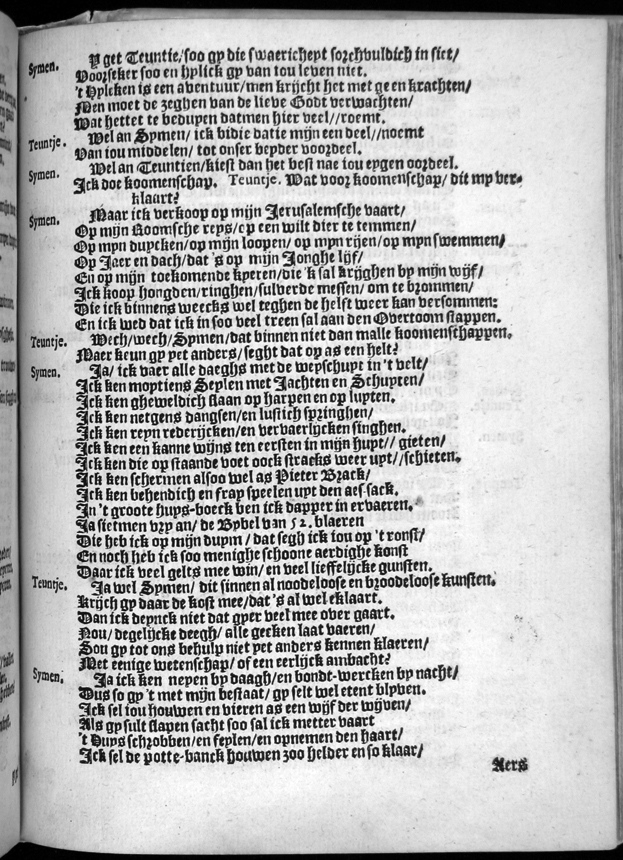 Symen. Y get Teuntie/soo gy die swaericheyt sorchvuldich in siet/
Voorseker soo en hylick gy van iou leven niet.
't Hylcken is een aventuur/men krijcht het met geen krachten/
Men moet de zeghen van de lieve Godt verwachten/
Wat hettet te beduyen datmen hier veel//roemt.
Teuntje. Wel an Symen/ ick bidie datie mijn een deel//noemt
Van iou middelen/ tot onser beyder voordeel.
Symen. Wel an Teuntien/kiest dan het best nae iou eygen oordeel.
Ick doe koomenschap. Teuntje. Wat voor koomenschap/ dit my ver-
klaart?
Symen. Maar ick verkoop op mijn Jerusalemsche vaart/
Op mijn Roomsche reys/op een wilt dier te temmen/
Op myn duycken/op mijn loopen/ op myn rijen/op myn swemmen/
Op Jaer en dach/dat 's op mijn Jonghe lijf/
En op mijn toekomende kyeren/die 'k sal krijghen by mijn wijf/
Ick koop hongden/ringhen/sulverde messen/ om te brommen/
Die ick binnens weecks wel teghen de helst weer kan versommen:
En ick wed dat ick in soo veel treen sal aan den Overtoom stappen.
Teuntje. Wech/wech/Symen/dat binnen niet dan malle koomenschappen.
Maer keun gy yet anders/seght dat op as een helt?
Symen. Ja/ ick vaer alle daeghs met de weyschuyt in 't velt/
Ick ken moytiens Seylen met Jachten en Schuyten/
Ick ken gheweldich slaan op harpen en op luyten.
Ick ken netgens dangsen/en lustich springhen/
Ick ken reyn rederijcken/en vervaerlycken singhen.
Ick ken een kanne wijns ten eersten in mijn huyt// gieten/
Ick ken die op staande voet oock stracks weer uyt//schieten.
Ick ken schermen alsoo wel as Pieter Brack/
Ick ken behendich en fray speelen uyt den aes-sack.
In 't groote huys-boeck ben ick dapper in ervaeren.
Ja sietmen vry an/ de Bybel van 52. blaeren
Die heb ick op mijn duym/ dat segh ick iou op 't ronst/
En noch heb ick soo menighe schoone aerdighe konst
Daar ick veel gelts mee win/ en veel lieffelijcke gunsten.
Teuntje. Ja wel Symen/ dit sinnen al noodeloose en broodeloose kunsten.
Krijch gy daar de kost mee/dat 's al wel eklaart.
Dan ick deynck niet dat gyer veel mee over gaart.
Nou/ degelijcke deegh/ alle gecken laat vaeren/
Sou gy tot ons behulp niet yet anders kennen klaeren/
Met eenige wetenschap/ of een eerlijck ambacht?
Symen. Ja ick ken neyen by daagh/en bondt-wercken by nacht/
Dus so gy 't met mijn bestaat/ gy selt wel etent blyven.
Ick sel iou houwen en vieren as een wijf der wijven/
Als gy sult slapen sacht soo sal ick metter vaart
't Huys schrobben/en feylen/en opnemen den haart/
Ick sel de potte-banck houwen zoo helder en so klaar/
Aers